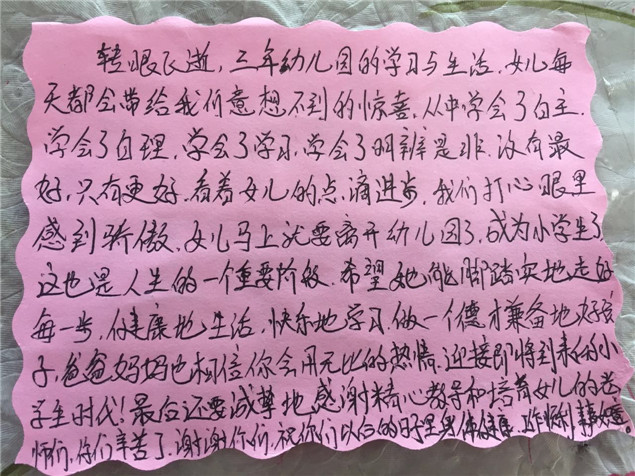 转眼飞逝，三年幼儿园的学习与生活，女儿每
天都会带给我们意想不到的惊喜，从中学会了自主，
学会了自理，学会了学习，学会了明辨是非，没有最
好，只有更好，看着女儿的点滴进步，我们打心眼里
感到骄傲，女儿马上就要离开幼儿园了，成为小学生了
这也是人生的一个重要阶段，希望她能脚踏实地走好
每一步，健康地生活，快乐地学习，做一个德才兼备地好孩
子，爸爸妈妈也相信你会用无比的热情，迎接即将到来的小
学生时代！最后还要诚挚地感谢精心教导和培育女儿的老
师们，你们辛苦了，谢谢你们，祝你们以后的日子里身体健康，工作顺利，事事如意。